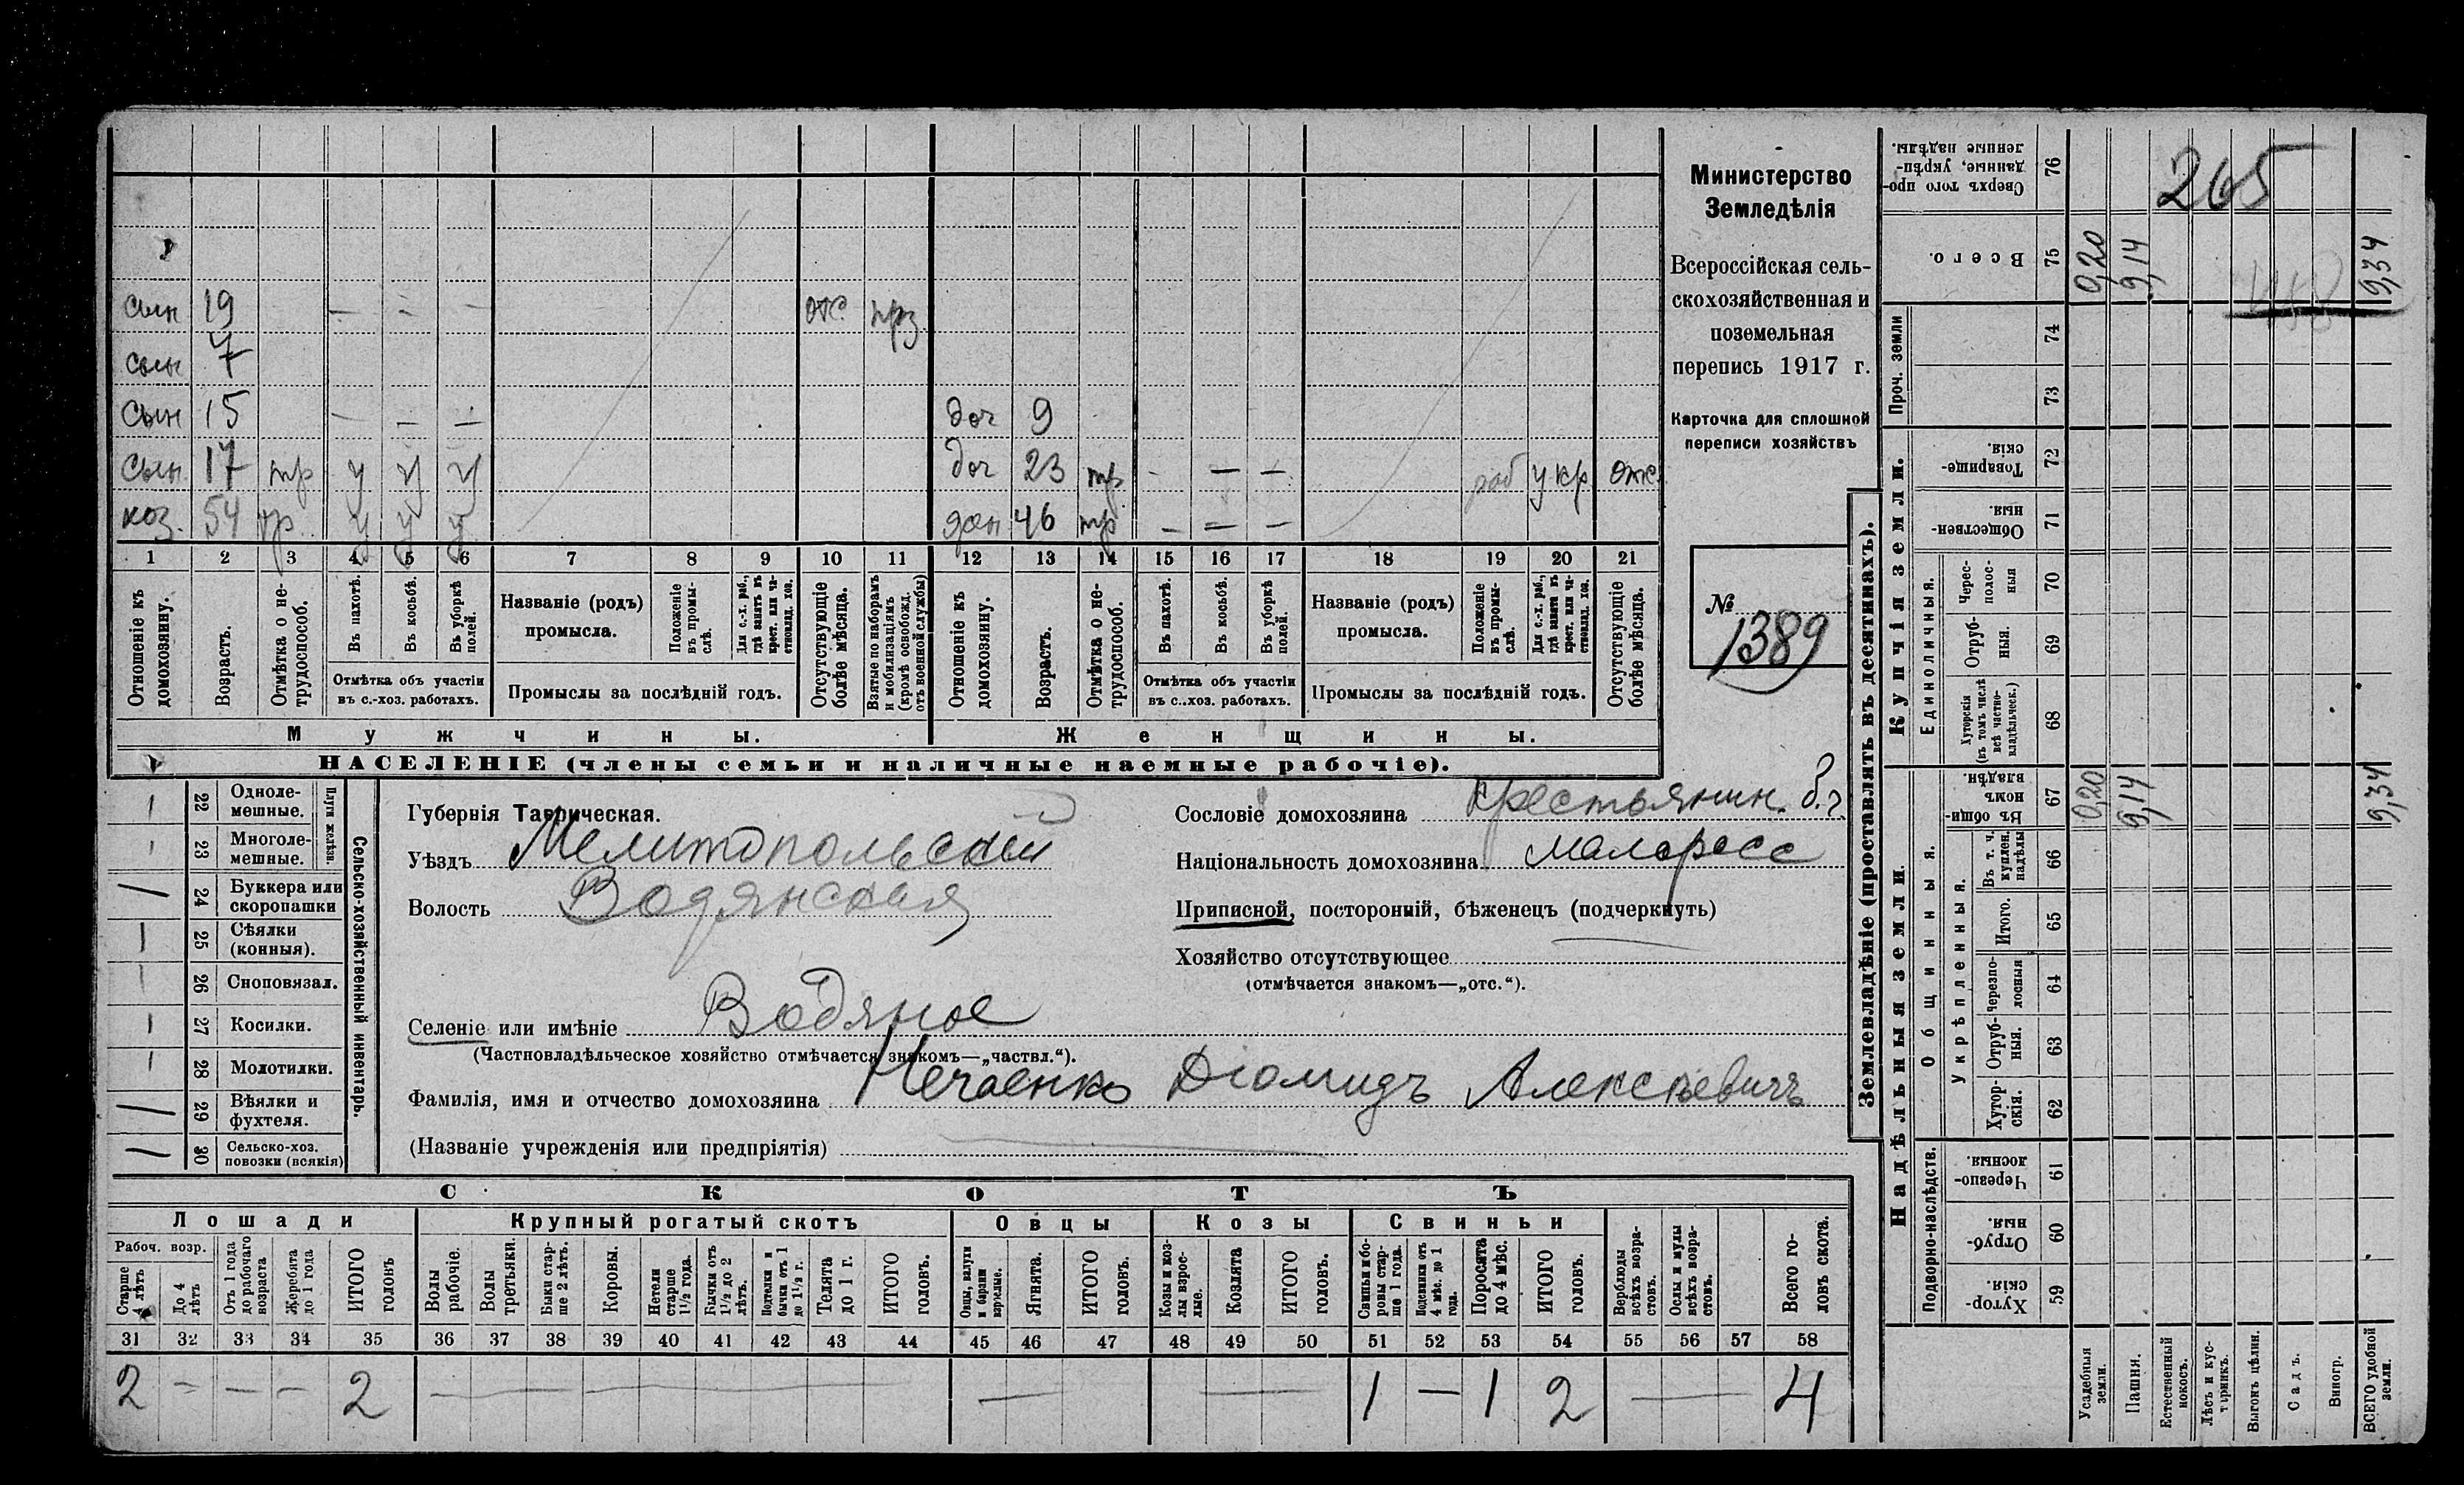 сын 19 — — — отс. прз.
сын 7
сын 15 — — — доч 9
сын 17 тр у у у доч 23 тр - — — раб у кр отс.
хоз. 54 тр у у у жен 46 тр — — —
1 2 3 4 5 6 7 8 9 10 11 12 13 14 15 16 17 18 19 20 21
Отношеніе къ домохозяину.
Возрастъ.
Отмѣтка о нетрудоспособ.
Въ пахотѣ.
Въ косьбѣ.
Въ уборкѣ полей.
Отмѣтка объ участіи
въ с.-хоз. работахъ.
Названіе (родъ)
промысла.
Положеніе въ промыслѣ.
Для с.-х. раб., гдѣ занятъ въ крест. или частновлад. хоз.
Промыслы за послѣдній годъ.
Отсутствующіе болѣе мѣсяца.
Взятые по наборамъ и мобилизаціямъ (кромѣ освобожд. отъ военной службы)
Отношеніе къ домохозяину.
Возрастъ.
Отмѣтка о нетрудоспособ.
Въ пахотѣ.
Въ косьбѣ.
Въ уборкѣ полей.
Отмѣтка объ участіи
въ с..хоз. работахъ.
Названіе (родъ)
промысла.
Положеніе въ промыслѣ.
Для с.-х. раб., гдѣ занята въ крест. или частновлад. хоз.
Промыслы за послѣдній годъ.
Отсутствующіе болѣе мѣсяца.
Мужчины. Женщины.
НАСЕЛЕНІЕ (члены семьи и наличные наемные рабочіе).
Министерство
Земледѣлія
Всероссійская сель-
скохозяйственная и
поземельная
перепись 1917 г.
Карточка для сплошной
переписи хозяйствъ
№
1389
Сельско-хозяйственный инвентарь.
Плуги желѣзн.
22 Одноле-
мешные.
23 Многоле-
мешные.
24 Буккера или
скоропашки
25 Сѣялки
(конныя).
26 Сноповязал.
27 Косилки.
28 Молотилки.
29 Вѣялки и
фухтеля.
30 Сельско-хоз.
повозки (всякія)
Губернія Таврическая.
Уѣздъ Мелитопольскій
Волость Водянская
Селеніе или имѣніе Водяное
(Частновладѣльческое хозяйство отмѣчается знакомъ—„частвл.“).
Фамилія, имя и отчество домохозяина Нечаенко Діомидъ Алексѣевичъ
(Названіе учрежденія или предпріятія)
Сословіе домохозяина Крестьянин.
Національность домохозяина малоросс
Приписной, посторонній, бѣженецъ (подчеркнуть)
Хозяйство отсутствующее
(отмѣчается знакомъ—„отс.“).
СКОТЪ
Лошади Крупный рогатый скотъ Овцы Козы Свиньи
Рабоч. возр.
Старше 4 лѣтъ
До 4 лѣтъ
Отъ 1 года до рабочаго возраста
Жеребята до 1 года
ИТОГО головъ
Волы рабочіе.
Волы третьяки.
Быки старше 2 лѣтъ.
Коровы.
Нетели старше 1½ года.
Бычки отъ 1½ до 2 лѣтъ.
Подтелки и бычки отъ 1 до 1½ г.
Телята до 1 г.
ИТОГО головъ.
Овцы, валухи и бараны взрослые.
Ягнята.
ИТОГО головъ.
Козы и козлы взрослые.
Козлята
ИТОГО головъ.
Свиньи и боровы старше 1 года.
Подсвинки отъ 4 мѣс. до 1 года.
Поросята до 4 мѣс.
ИТОГО головъ.
Верблюды всѣхъ возрастовъ.
Ослы и мулы всѣхъ возрастовъ.
Всего головъ скота.
31 32 33 34 35 36 37 38 39 40 41 42 43 44 45 46 47 48 49 50 51 52 53 54 55 56 57 58
2 — — — 2 — — — 1 — 1 2 — 4
Землевладѣніе (проставлять въ десятинахъ).
Надѣльныя земли.
Купчія земли.
Проч. земли
Подворно-наслѣдств.
Общинныя.
Укрѣпленныя.
Единоличныя.
Сверхъ того проданные, укрѣпленные надѣлы. 76
265
Всего. 75 0,20 9,14 9,34
74
73
Товарищескія. 72
Общественныя. 71
Чересполосныя 70
Отрубныя. 69
Хуторскія (въ томъ числѣ всѣ частновладѣльческ.) 68
Въ общинномъ владѣн. 67 0,20 9,14 9,34
Въ т. ч. куплен. надѣлы 66
Итого. 65
Черезполосныя 64
Отрубныя. 63
Хуторскія. 62
Черезполосныя. 61
Отрубныя. 60
Хуторскія. 59
Усадебныя земли.
Пашня.
Естественный покосъ.
Лѣсъ и кустарникъ.
Выгонъ цѣлин.
Садъ.
Виногр.
ВСЕГО удобной земли.